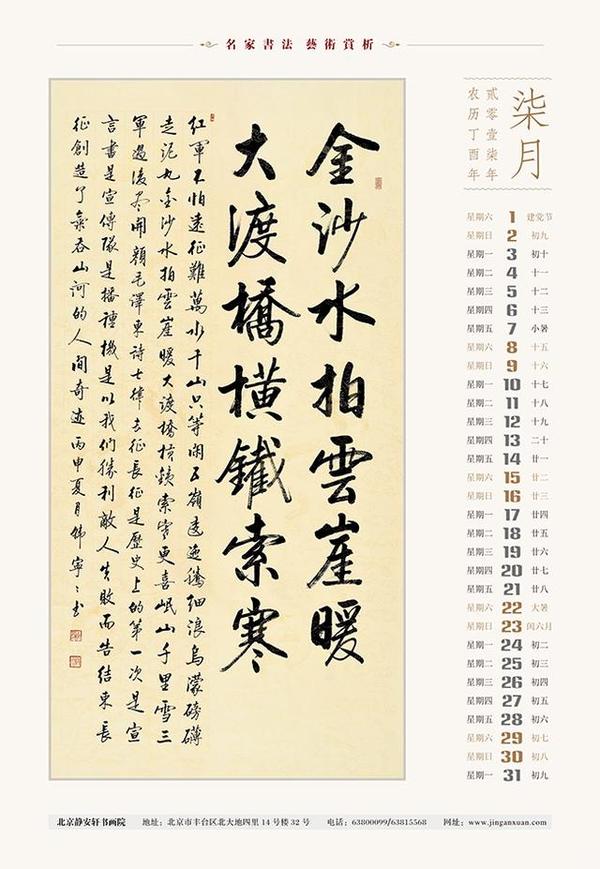 名家書法 藝術賞析
金沙水拍雲崖暖
大渡橋橫鐵索寒
紅軍不怕遠征難萬水千山只等閒五嶺逶迤騰細浪烏濛磅礴
走泥丸金沙水拍雲崖暖大渡橋橫鐵索寒更喜岷山千里雪三
軍過後盡開顏毛澤東詩七律長征長征是歷史上的第一次是宣
言書是宣傳隊是播種機是以我們勝利敵人失敗而告結束長
征創造了氣吞山河的人間奇迹丙申夏月韓寧〻书
柒月
贰零壹柒年
农历丁酉年
星期六 1 建党节
星期日 2 初九
星期一 3 初十
星期二 4 十一
星期三 5 十二
星期四 6 十三
星期五 7 小暑
星期六 8 十五
星期日 9 十六
星期一 10 十七
星期二 11 十八
星期三 12 十九
星期四 13 二十
星期五 14 廿一
星期六 15 廿二
星期日 16 廿三
星期一 17 廿四
星期二 18 廿五
星期三 19 廿六
星期四 20 廿七
星期五 21 廿八
星期六 22 大暑
星期日 23 闰六月
星期一 24 初二
星期二 25 初三
星期三 26 初四
星期四 27 初五
星期五 28 初六
星期六 29 初七
星期日 30 初八
星期一 31 初九
北京静安轩书画院 地址：北京市丰台区北大地四里14号楼32号 电话：63800099/63815568 网址：www.jinganxuan.com